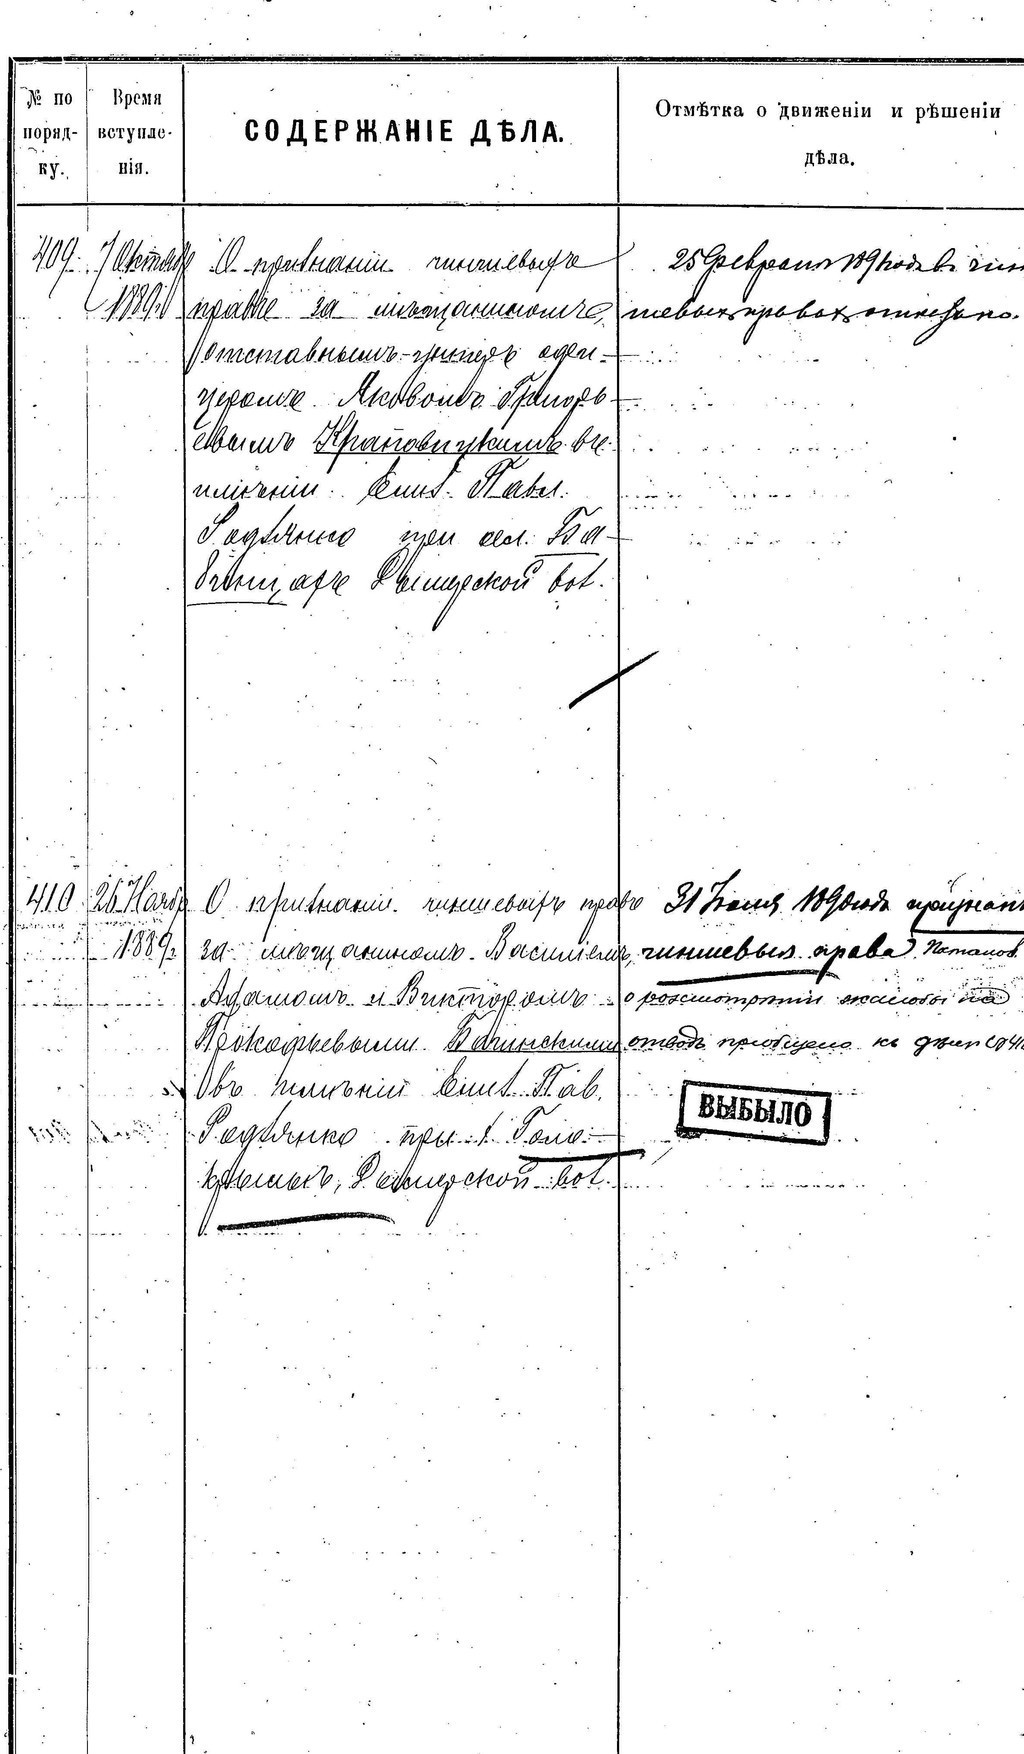 № по
поряд-
ку.
Время
вступле-
нія.
СОДЕРЖАНІЕ ДѢЛА.
Отмѣтка о движеніи и рѣшеніи
дѣла.
409. 7 Октяб
1889г.
О признаніи чиншевыхъ
правъ за мѣщаниномъ,
отставнымъ унтеръ офи-
церомъ Яковомъ Григорь-
евымъ Крановицкимъ въ
имѣніи Елис. Павл.
Родзянко при сел. Ба-
бинцахъ Дымерской вол.
25 Февраля 1891 года въ чин
шевых правах отказано.
410 26 Нояб
1889г.
О признаніи чиншевыхъ правъ
за мѣщаниномъ Василіемъ,
Адамомъ и Викторомъ
Прокофьевыми Багинскими
въ имѣніи Елис. Пав.
Родзянко при с. Голо-
Дымерской вол.
31 Іюля 1890 года признан
чиншевыя права. Постанов.
о разсмотреніи жалобы на
отводъ приобщено къ дѣлу
ВЫБЫЛО